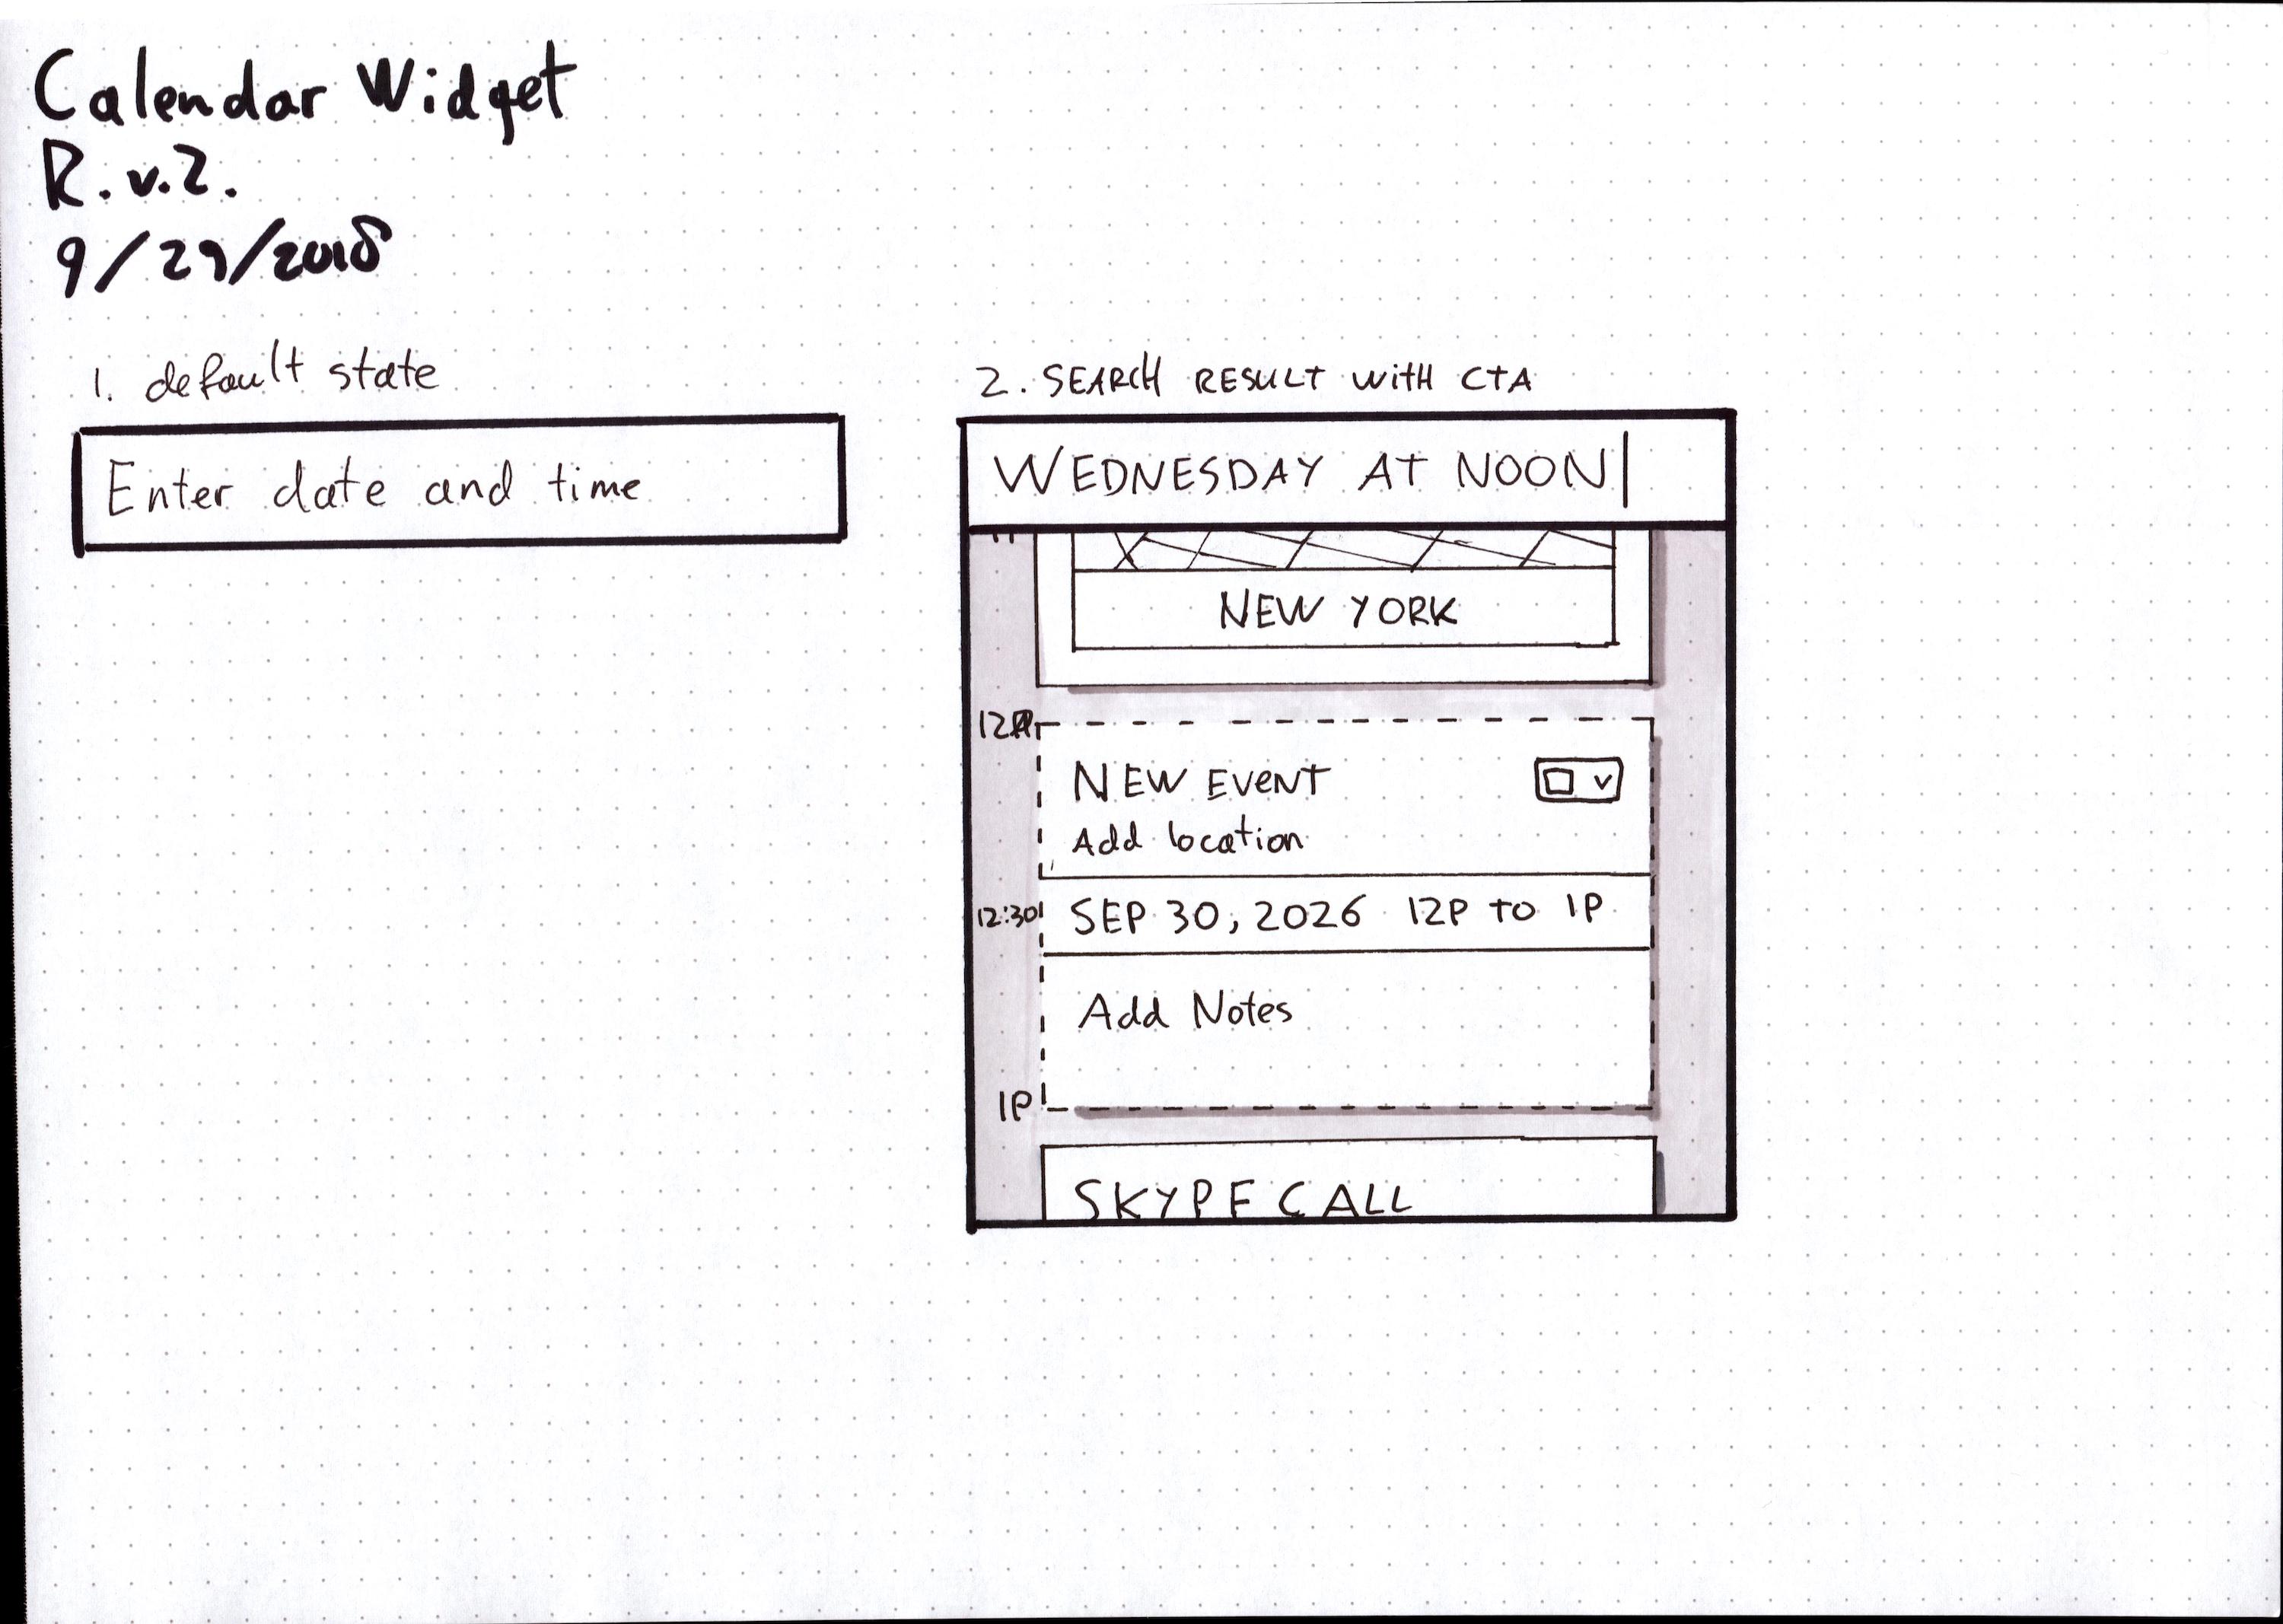 Calendar Widget
R.v.2.
9/29/2018
1. default state
Enter date and time
2. SEARCH RESULT WITH CTA
WEDNESDAY AT NOON
NEW YORK
12P
NEW EVENT
Add location
12:30
SEP 30, 2026 12P TO 1P
Add Notes
1P
SKYPE CALL